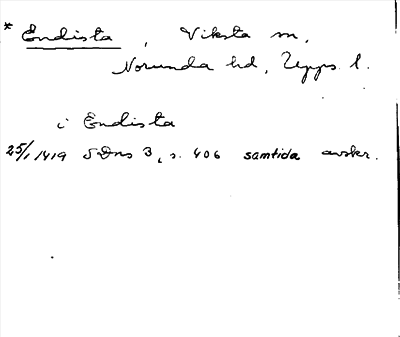 * Endista, Viksta sn,
Norunda hd, Upps. l.
i Endista
25/1 1419 SDns 3, s. 406 samtida avskr.